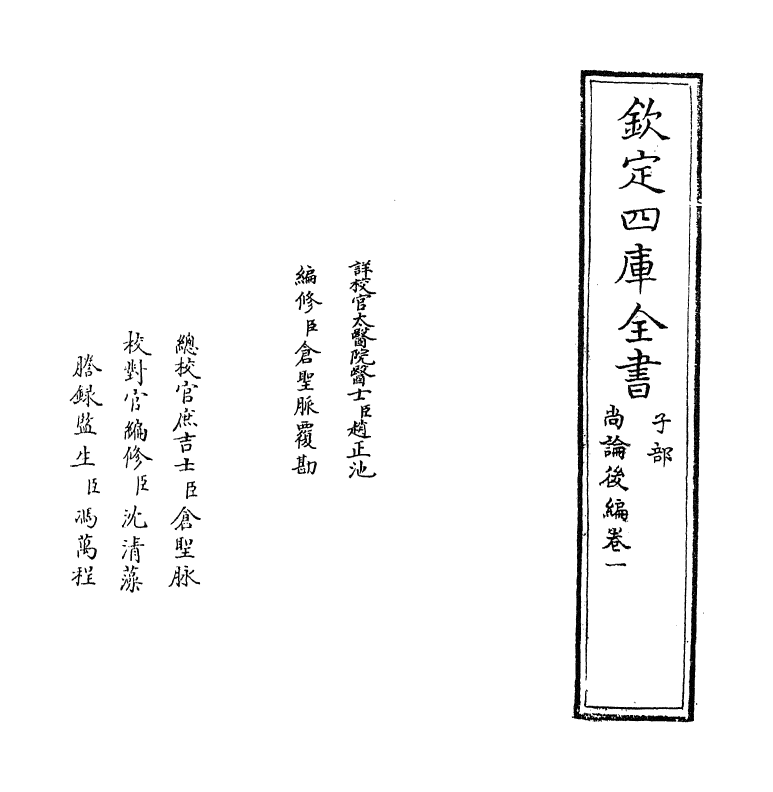 欽定四庫全書
子部
尚論後編卷一
詳校官太醫院醫士臣趙正池
編修臣倉聖脈覆勘
總校官庶吉士臣倉聖脉
校對官編修臣沈清藻
謄錄監生臣馮萬程